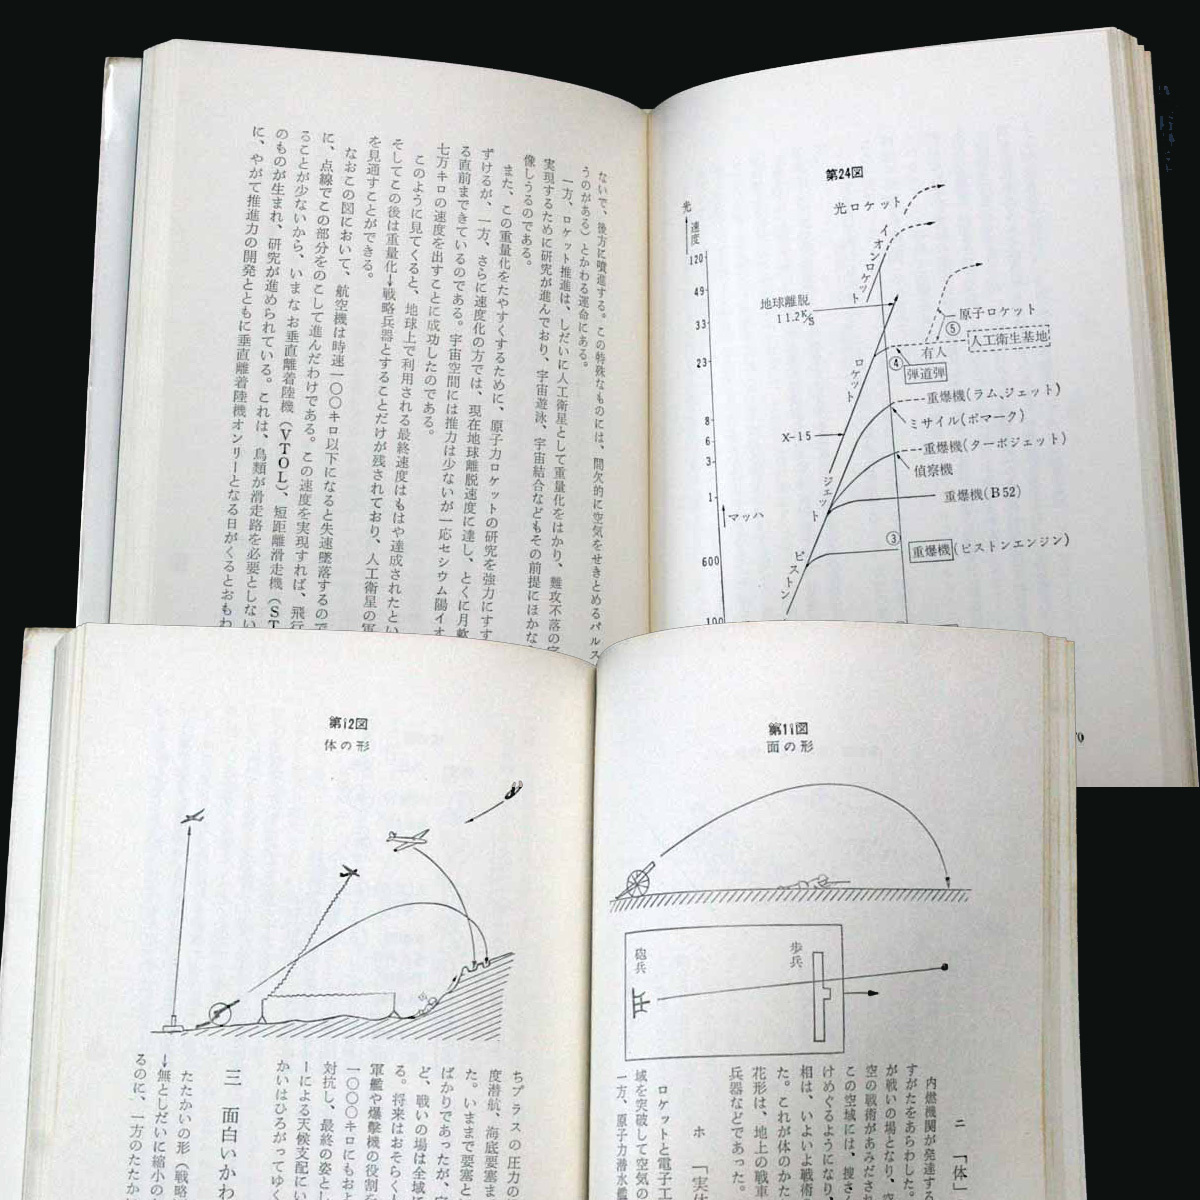 第24図
光ロケット
イオンロケット
光
速度
120
49
33
23
8
6
3
1
マッハ
600
100
地球離脱
11.2K/S
ロケット
X-15
ジェット
ピストン
原子ロケット
⑤
人工衛生基地
有人
④
弾道弾
重爆機(ラム、ジェット)
ミサイル(ボマーク)
重爆機(ターボジェット)
偵察機
重爆機(B52)
③
重爆機(ピストンエンジン)
70
ないで、後方に噴進する。この特殊なものには、間欠的に空気をせきとめるパルス
うのがある)とかわる運命にある。
一方、ロケット推進は、しだいに人工衛星として重量化をはかり、難攻不落の
実現するために研究が進んでおり、宇宙遊泳、宇宙結合などもその前提にほかな
像しうるのである。
また、この重量化をたやすくするために、原子力ロケットの研究を強力にすす
ずけるが、一方、さらに速度化の方では、現在地球離脱速度に達し、とくに月
る直前まできているのである。宇宙空間には推力は少ないが一応セシウム陽イオ
七万キロの速度を出すことに成功したのである。
このように見てくると、地球上で利用される最終速度はもはや達成されたとい
そしてこの後は重量化→戦略兵器とすることだけが残されており、人工衛星の軍
を見通すことができる。
なおこの図において、航空機は時速一〇〇キロ以下になると失速墜落するので
に、点線でこの部分をのこして進んだわけである。この速度を実現すれば、飛行
ることが少ないから、いまなお垂直離着陸機(VTOL)、短距離滑走機(ST
のものが生まれ、研究が進められている。これは、鳥類が滑走路を必要としない
に、やがて推進力の開発とともに垂直離着陸機オンリーとなる日がくるとおもわ
第11図
面の形
砲兵
歩兵
ニ 「体」
内燃機関が発達する
すがたをあらわした。
が戦いの場となり、空
空の戦術があみだされ
この空域には、捜さ
けめぐるようになり、
相は、いよいよ戦術
た。これが体のかた
花形は、地上の戦車
兵器などであった。
ホ 「実体
ロケットと電子工
域を突破して空気の
一方、原子力潜水艦
第12図
体の形
ちプラスの圧力の
度潜航、海底要塞ま
た。いままで要塞と
ばかりであったが、
ど、戦いの場は全域に
る。将来はおそらく
軍艦や爆撃機の役割を
一〇〇〇キロにもおと
対抗し、最終の姿とし
ーによる天候支配にい
かいはひろがってゆく
三 面白いかわ
たたかいの形(戦略
→無としだいに縮小の
るのに、一方のたたか